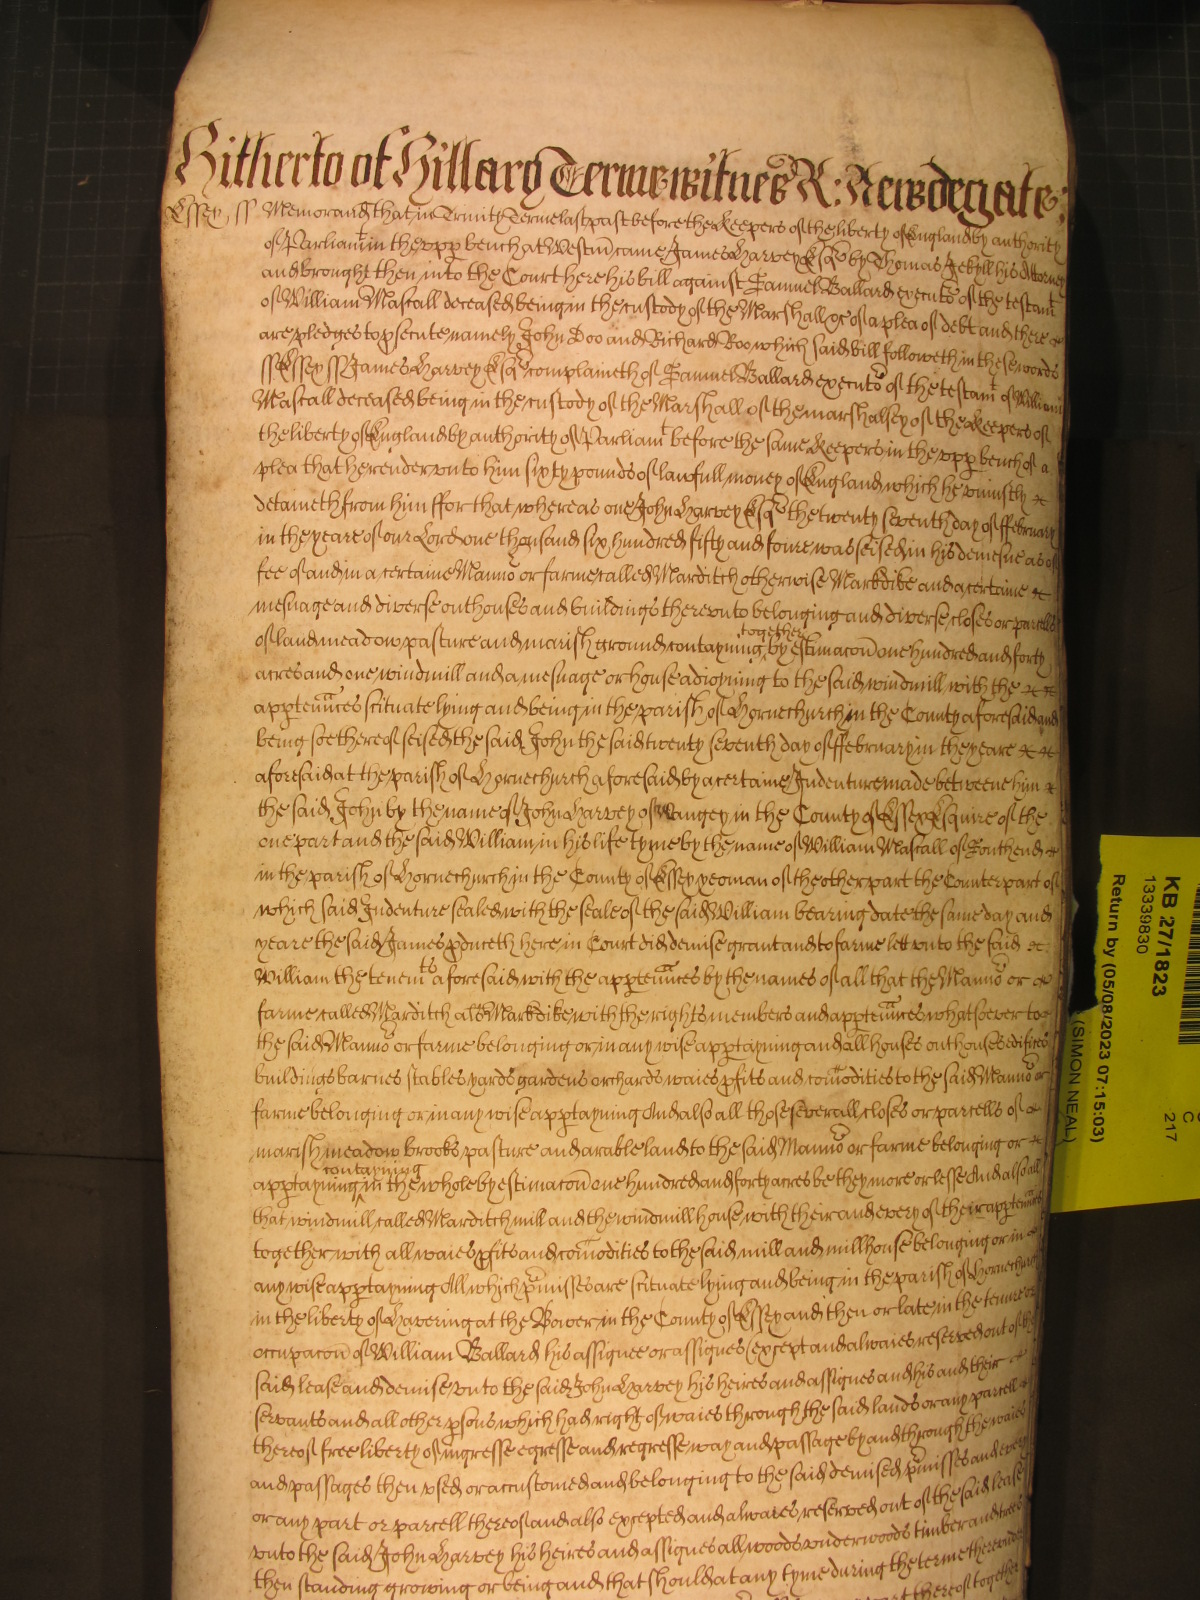 Hitherto of Hillary Terme witnes R: Newdegate:
Essex, ss Memorand that in Trinity Terme last past before the Keepers of the liberty of England by authority
of Parliamt in the upp bench at Westm came James Harvey Esqr by Thomas Jekyll his Attorney
and brought then into the Court here his bill against Samuel Ballard executr of the testamt
of William Mascall deceased being in the custody of the Marshall &c of a plea of debt and there
are pledges to psecute namely John Doo and Richard Roo which said bill followeth in these words
ss Essex ss James Harvey Esqr complaineth of Samuel Ballard executor of the testamt of William
Mascall deceased being in the custody of the Marshall of the marshalsey of the Keepers of
the liberty of England by authority of Parliamt before the same Keepers in the upp bench of a
plea that he render unto him sixty pounds of lawfull money of England which he uniustly
detaineth from him ffor that whereas one John Harvey Esqr the twenty seventh day of ffebruary
in the yeare of our Lord one thousand six hundred fifty and foure was seised in his demesne as of
fee of and in a certaine Mannor or farme called Marditch otherwise Markdike and a certaine
mesuage and diverse outhouses and buildings thereunto belonging and diverse closes or parcells
of land meadow pasture and marish ground contayning together by estimacon one hundred and forty
acres and one windmill and a mesuage or house adioyning to the said windmill with the
appteunces scituate lying and being in the parish of Hornechurch in the County aforesaid and
being soe thereof seised the said John the said twenty seventh day of ffebruary in the yeare
aforesaid at the parish of Hornechurch aforesaid by a certaine Indenture made betweene him
the said John by the name of John Harvey of Wangey in the County of Essex Esquire of the
one part and the said William in his life tyme by the name of William Mascall of Southend
in the parish of Hornechurch in the County of Essex yeoman of the other part the Counterpart of
which said Indenture sealed with the seale of the said William bearing date the same day and
yeare the said James pduceth here in Court did demise grant and to farme lett unto the said
William the tenemts aforesaid with the appteunces by the names of all that the Mannor or
farme called Marditch als Markdike with the rights members and appteunces whatsoever to
the said Mannor or farme belonging or in any wise apptayning and all houses outhouses edifices
buildings barnes stables yards gardens orchards waies pfits and comodities to the said Mannor or
farme belonging or in any wise apptayning And also all those severall closes or parcells of
marish meadow brooks pasture and arable land to the said Mannor or farme belonging or
apptayning containing in the whole by estimacon one hundred and forty acres be they more or lesse And also all
that windmill called Marditch mill and the windmill house with their and every of their appteunces
together with all waies pfits and comodities to the said mill and millhouse belonging or in
any wise apptayning All which pmisses are scituate lying and being in the parish of Hornechurch
in the liberty of Havering at the Bower in the County of Essex and then or late in the tenure or
occupacon of William Ballard his assignee or assignes (except and alwaies reserved out of the
said lease and demise unto the said John Harvey his heires and assignes and his and their
servants and all other psons which had right of waies through the said lands or any parcell
thereof free liberty of ingresse egresse and regresse way and passage by and through the waies
and passages then used or accustomed and belonging to the said demised pmisses and every
or any part or parcell thereof and also excepted and alwaies reserved out of the said lease
unto the said John Harvey his heires and assignes all woods underwoods timber and trees
then standing growing or being and that should at any tyme during the terme thereunder
thereof together
KB 27/1823
13339830
Return by (05/08/2023 07:15:03)
(SIMON NEAL)
217